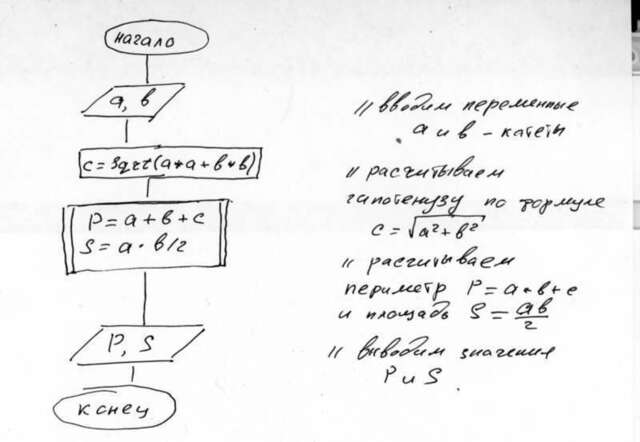 начало
a, в
c = Sqrt(a*a + в*в)
P = a + в + c
S = a · в/2
P, S
конец
// вводим переменные
a и в – катеты
// расчитываем
гапотенузу по формуле
c = √a² + в²
// расчитываем
периметр P = a + в + c
и площадь S = aв/2
// выводим значения
P и S.